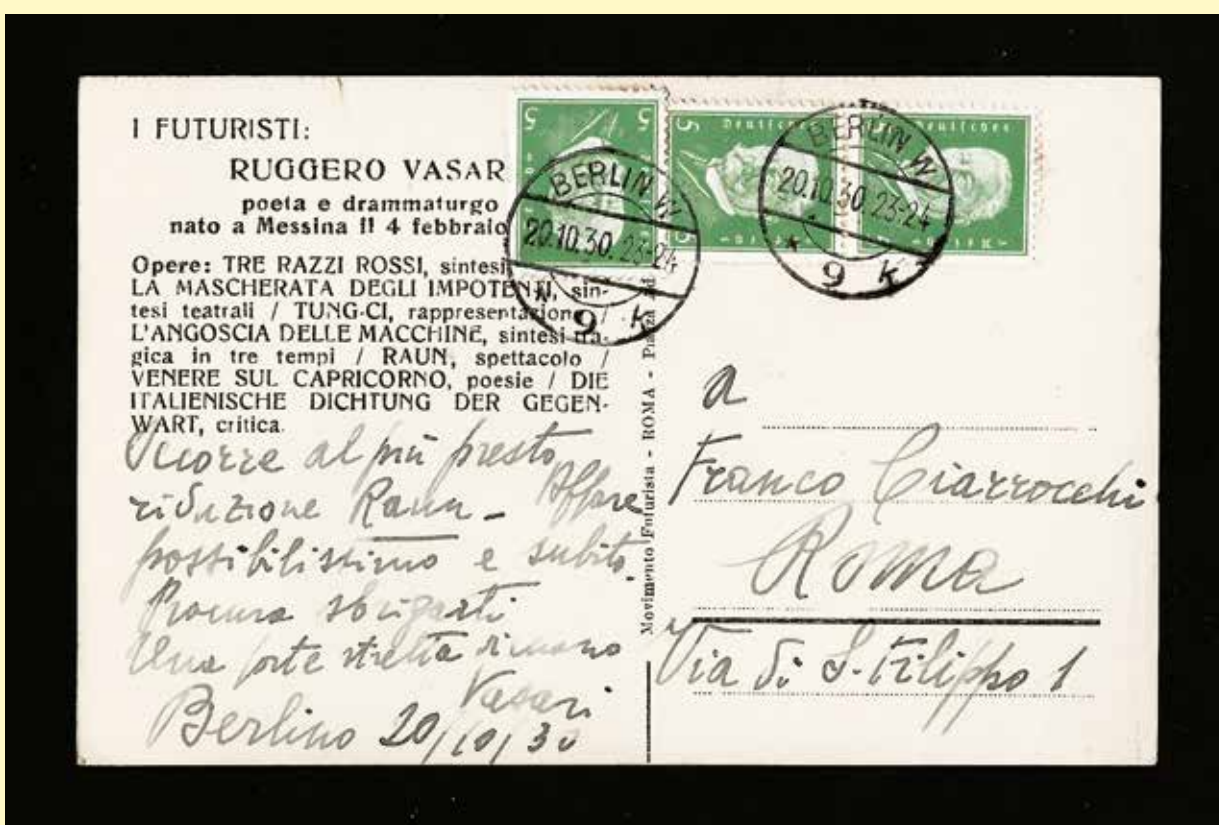 I FUTURISTI:
RUGGERO VASAR
poeta e drammaturgo
nato a Messina il 4 febbraio
Opere: TRE RAZZI ROSSI, sintesi
LA MASCHERATA DEGLI IMPOTENTI, sin-
tesi teatrali / TUNG-CI, rappresentazione /
L'ANGOSCIA DELLE MACCHINE, sintesi tra-
gica in tre tempi / RAUN, spettacolo /
VENERE SUL CAPRICORNO, poesie / DIE
ITALIENISCHE DICHTUNG DER GEGEN-
WART, critica.
Occorre al più presto
riduzione Raun - Affare
possibilissimo e subito.
Procura sbrigarti
Una forte stretta di mano
Vasari
Berlino 20/10/30
Movimento Futurista - ROMA - Piazza Ad
5
5
5
Deutsches
5
Deutsches
BERLIN W
20.10.30. 23-24
* 9 k
BERLIN W
20.10.30 23-24
* 9 k
a
Franco Ciarrocchi
Roma
Via di S. Filippo 1